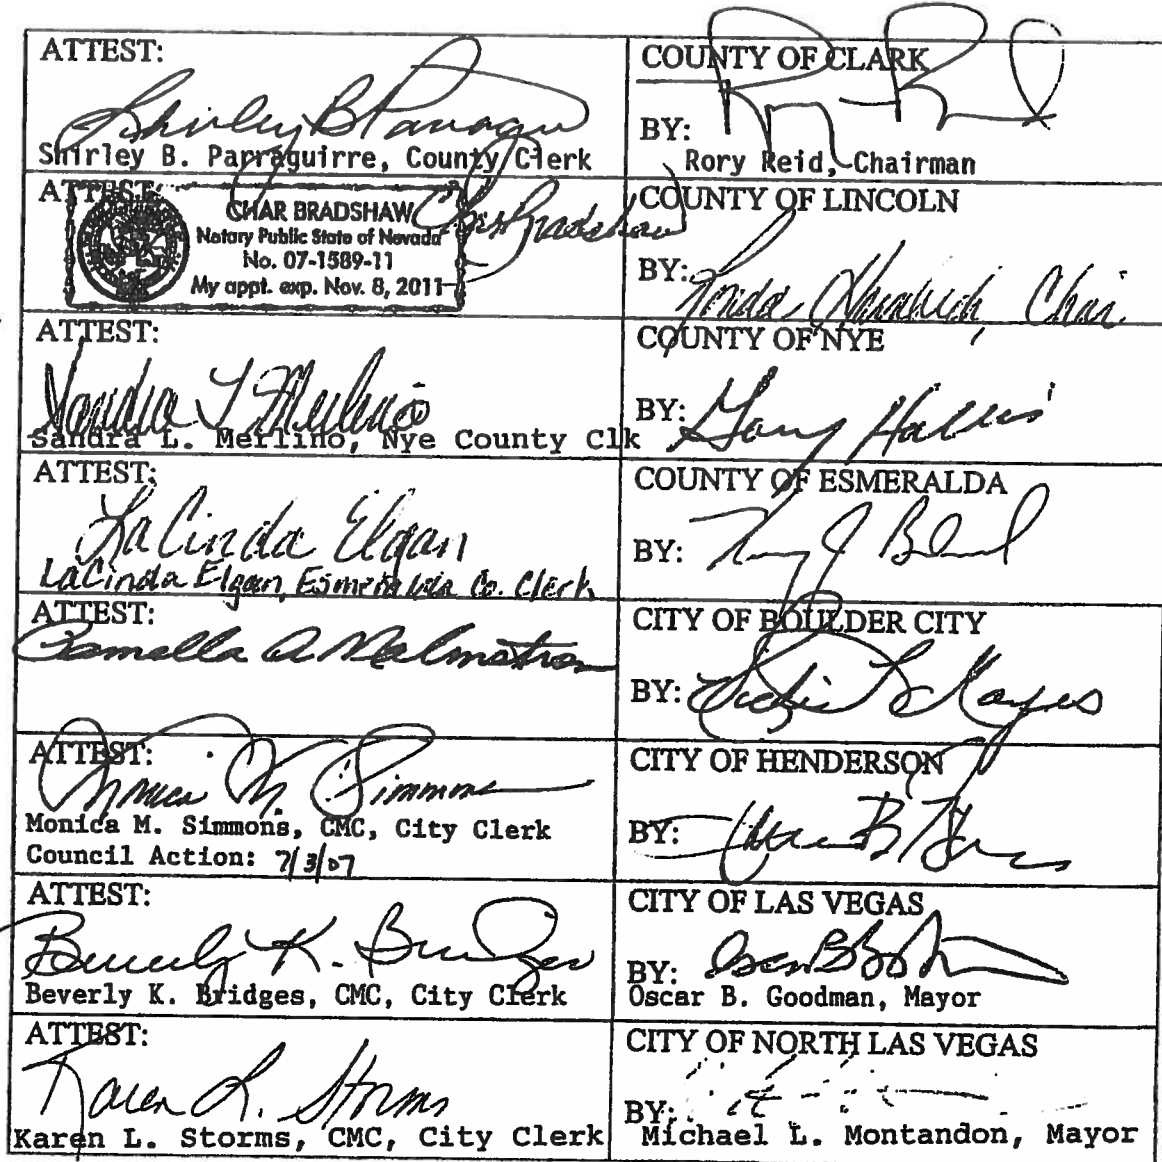 ATTEST:
Shirley B Parragui
Shirley B. Parraguirre, County Clerk
COUNTY OF CLARK
BY:
Rory Reid, Chairman
ATTEST:
CHAR BRADSHAW
Notary Public State of Nevada
No. 07-1589-11
My appt. exp. Nov. 8, 2011
Bradshaw
COUNTY OF LINCOLN
BY: Chair
ATTEST:
Sandra L Merlino
Sandra L. Merlino, Nye County Clk
COUNTY OF NYE
BY: Gary Hollis
ATTEST:
LaCinda Elgan
LaCinda Elgan, Esmeralda Co. Clerk
COUNTY OF ESMERALDA
BY:
ATTEST:
Pamella A Malmstrom
CITY OF BOULDER CITY
BY:
ATTEST:
Monica M. Simmons
Monica M. Simmons, CMC, City Clerk
Council Action: 7/3/07
CITY OF HENDERSON
BY:
ATTEST:
Beverly K. Bridges
Beverly K. Bridges, CMC, City Clerk
CITY OF LAS VEGAS
BY: Oscar B Goodman
Oscar B. Goodman, Mayor
ATTEST:
Karen L. Storms
Karen L. Storms, CMC, City Clerk
CITY OF NORTH LAS VEGAS
BY:
Michael L. Montandon, Mayor